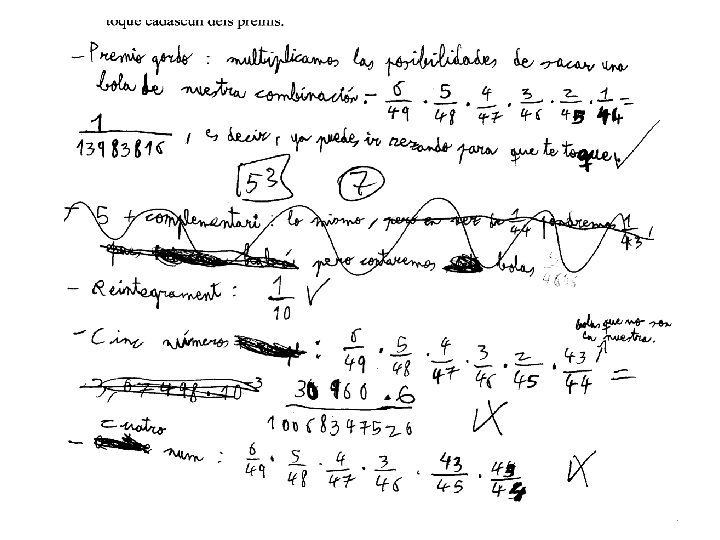 toque cadascun dels premis.
- Premio gordo : multiplicamos las posibilidades de sacar una
bola de nuestra combinación. - 6/49 · 5/48 · 4/47 · 3/46 · 2/45 · 1/44 =
1/13983816 , es decir, ya puedes ir rezando para que te toque. ✓
53 7
- 5 + complementari : lo mismo, pero en vez de 1/44 pondremos 1/43,
pero contaremos bolas
- Reintegrament : 1/10 ✓
bolas que no son
la nuestra.
- Cinc números : 6/49 · 5/48 · 4/47 · 3/46 · 2/45 · 43/44 =
3,07498·10^-3 30960 · 6 / 10068347520
cuatro
- num : 6/49 · 5/48 · 4/47 · 3/46 · 43/45 · 43/44